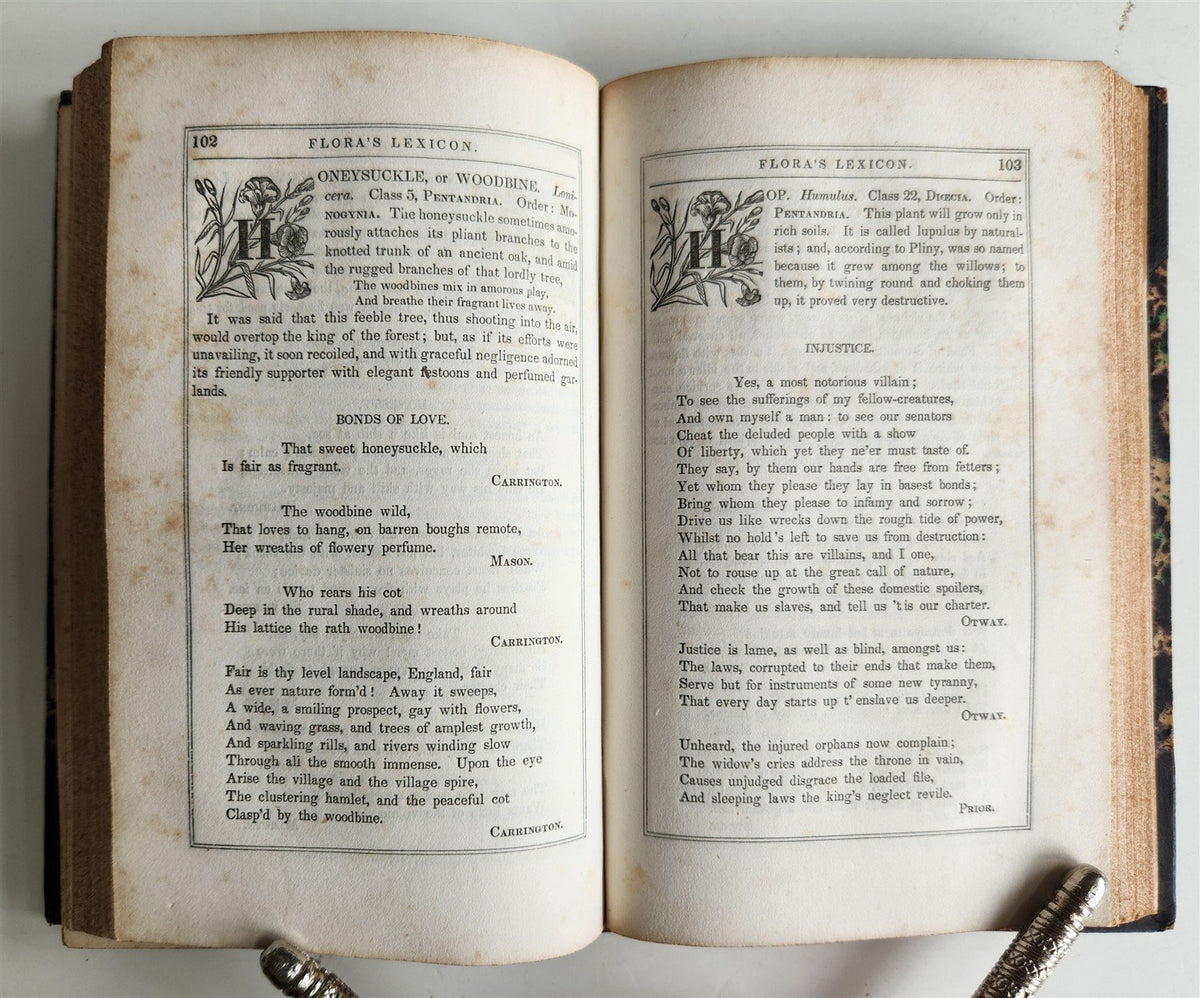 102
FLORA'S LEXICON.
HONEYSUCKLE, or WOODBINE. Loni-
cera. Class 5, PENTANDRIA. Order: MO-
NOGYNIA. The honeysuckle sometimes amo-
rously attaches its pliant branches to the
knotted trunk of an ancient oak, and amid
the rugged branches of that lordly tree,
The woodbines mix in amorous play,
And breathe their fragrant lives away.
It was said that this feeble tree, thus shooting into the air,
would overtop the king of the forest; but, as if its efforts were
unavailing, it soon recoiled, and with graceful negligence adorned
its friendly supporter with elegant festoons and perfumed gar-
lands.
BONDS OF LOVE.
That sweet honeysuckle, which
Is fair as fragrant.
CARRINGTON.
The woodbine wild,
That loves to hang, on barren boughs remote,
Her wreaths of flowery perfume.
MASON.
Who rears his cot
Deep in the rural shade, and wreaths around
His lattice the rath woodbine!
CARRINGTON.
Fair is thy level landscape, England, fair
As ever nature form'd! Away it sweeps,
A wide, a smiling prospect, gay with flowers,
And waving grass, and trees of amplest growth,
And sparkling rills, and rivers winding slow
Through all the smooth immense. Upon the eye
Arise the village and the village spire,
The clustering hamlet, and the peaceful cot
Clasp'd by the woodbine.
CARRINGTON.
FLORA'S LEXICON.
103
HOP. Humulus. Class 22, DIŒCIA. Order:
PENTANDRIA. This plant will grow only in
rich soils. It is called lupulus by natural-
ists; and, according to Pliny, was so named
because it grew among the willows; to
them, by twining round and choking them
up, it proved very destructive.
INJUSTICE.
Yes, a most notorious villain;
To see the sufferings of my fellow-creatures,
And own myself a man: to see our senators
Cheat the deluded people with a show
Of liberty, which yet they ne'er must taste of.
They say, by them our hands are free from fetters;
Yet whom they please they lay in basest bonds;
Bring whom they please to infamy and sorrow;
Drive us like wrecks down the rough tide of power,
Whilst no hold's left to save us from destruction:
All that bear this are villains, and I one,
Not to rouse up at the great call of nature,
And check the growth of these domestic spoilers,
That make us slaves, and tell us 't is our charter.
OTWAY.
Justice is lame, as well as blind, amongst us:
The laws, corrupted to their ends that make them,
Serve but for instruments of some new tyranny,
That every day starts up t' enslave us deeper.
OTWAY.
Unheard, the injured orphans now complain;
The widow's cries address the throne in vain,
Causes unjudged disgrace the loaded file,
And sleeping laws the king's neglect revile.
PRIOR.